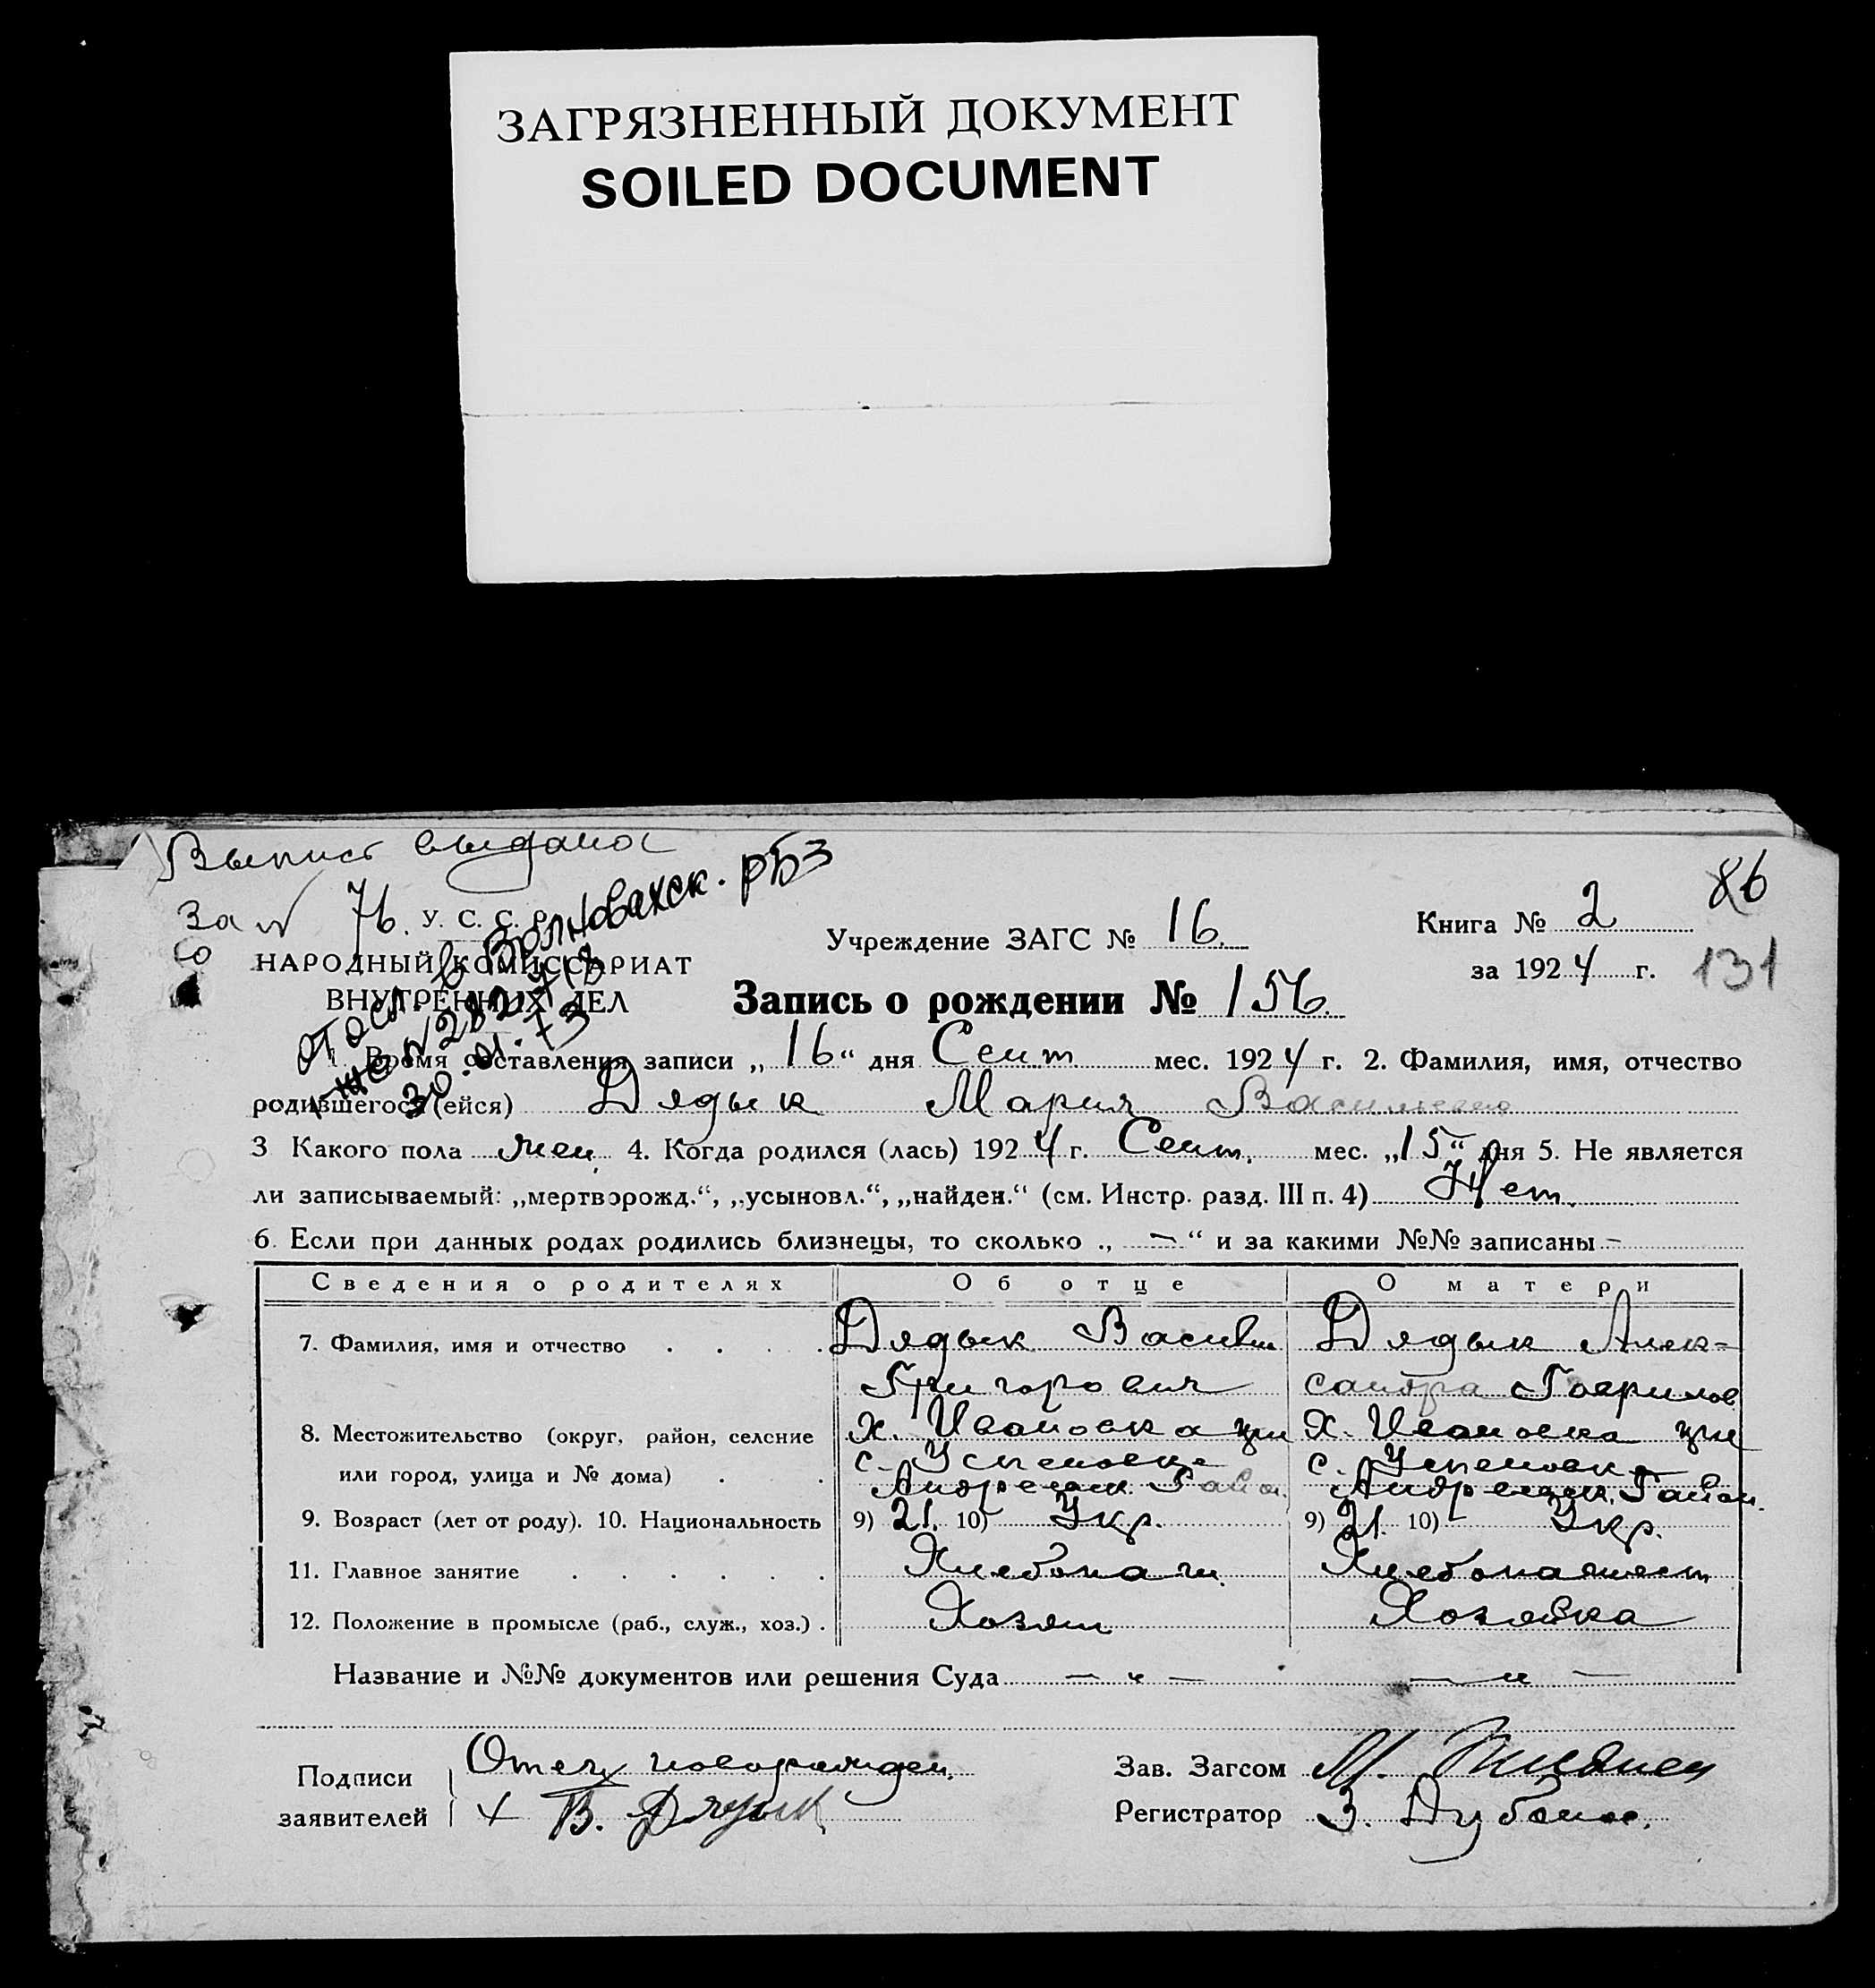 ЗАГРЯЗНЕННЫЙ ДОКУМЕНТ
SOILED DOCUMENT
Выпись выдана
за № 76.
У. С. С. Р.
НАРОДНЫЙ КОМИССАРИАТ
ВНУТРЕННИХ ДЕЛ
Волновахск. РБЗ
30.01.73
Учреждение ЗАГС № 16.
Книга № 2
86
за 1924 г.
131
Запись о рождении № 156.
1. Время составления записи „16“ дня Сент. мес. 1924 г. 2. Фамилия, имя, отчество
родившегося (ейся) Дядык Мария Васильевна
3 Какого пола жен. 4. Когда родился (лась) 1924 г. Сент. мес. „15“ дня 5. Не является
ли записываемый: „мертворожд.“, „усыновл.“, „найден.“ (см. Инстр. разд. III п. 4) Нет.
6. Если при данных родах родились близнецы, то сколько „ — “ и за какими №№ записаны —
Сведения о родителях Об отце О матери
7. Фамилия, имя и отчество Дядык Васили Дядык Алек-
Григорович сандра Гаврилов
8. Местожительство (округ, район, селение х. Ивановка при х. Ивановка при
или город, улица и № дома) с. Успеновке с. Успеновке
Андреевск. Район. Андреевск. Район.
9. Возраст (лет от роду). 10. Национальность 9) 21. 10) Укр. 9) 21. 10) Укр.
11. Главное занятие Хлебопаш. Хлебопашест
12. Положение в промысле (раб., служ., хоз.) Хозяин Хозяйка
Название и №№ документов или решения Суда — „ — — „ —
Подписи заявителей Отец новорожден.
+ В. Дядык
Зав. Загсом М.
Регистратор З.